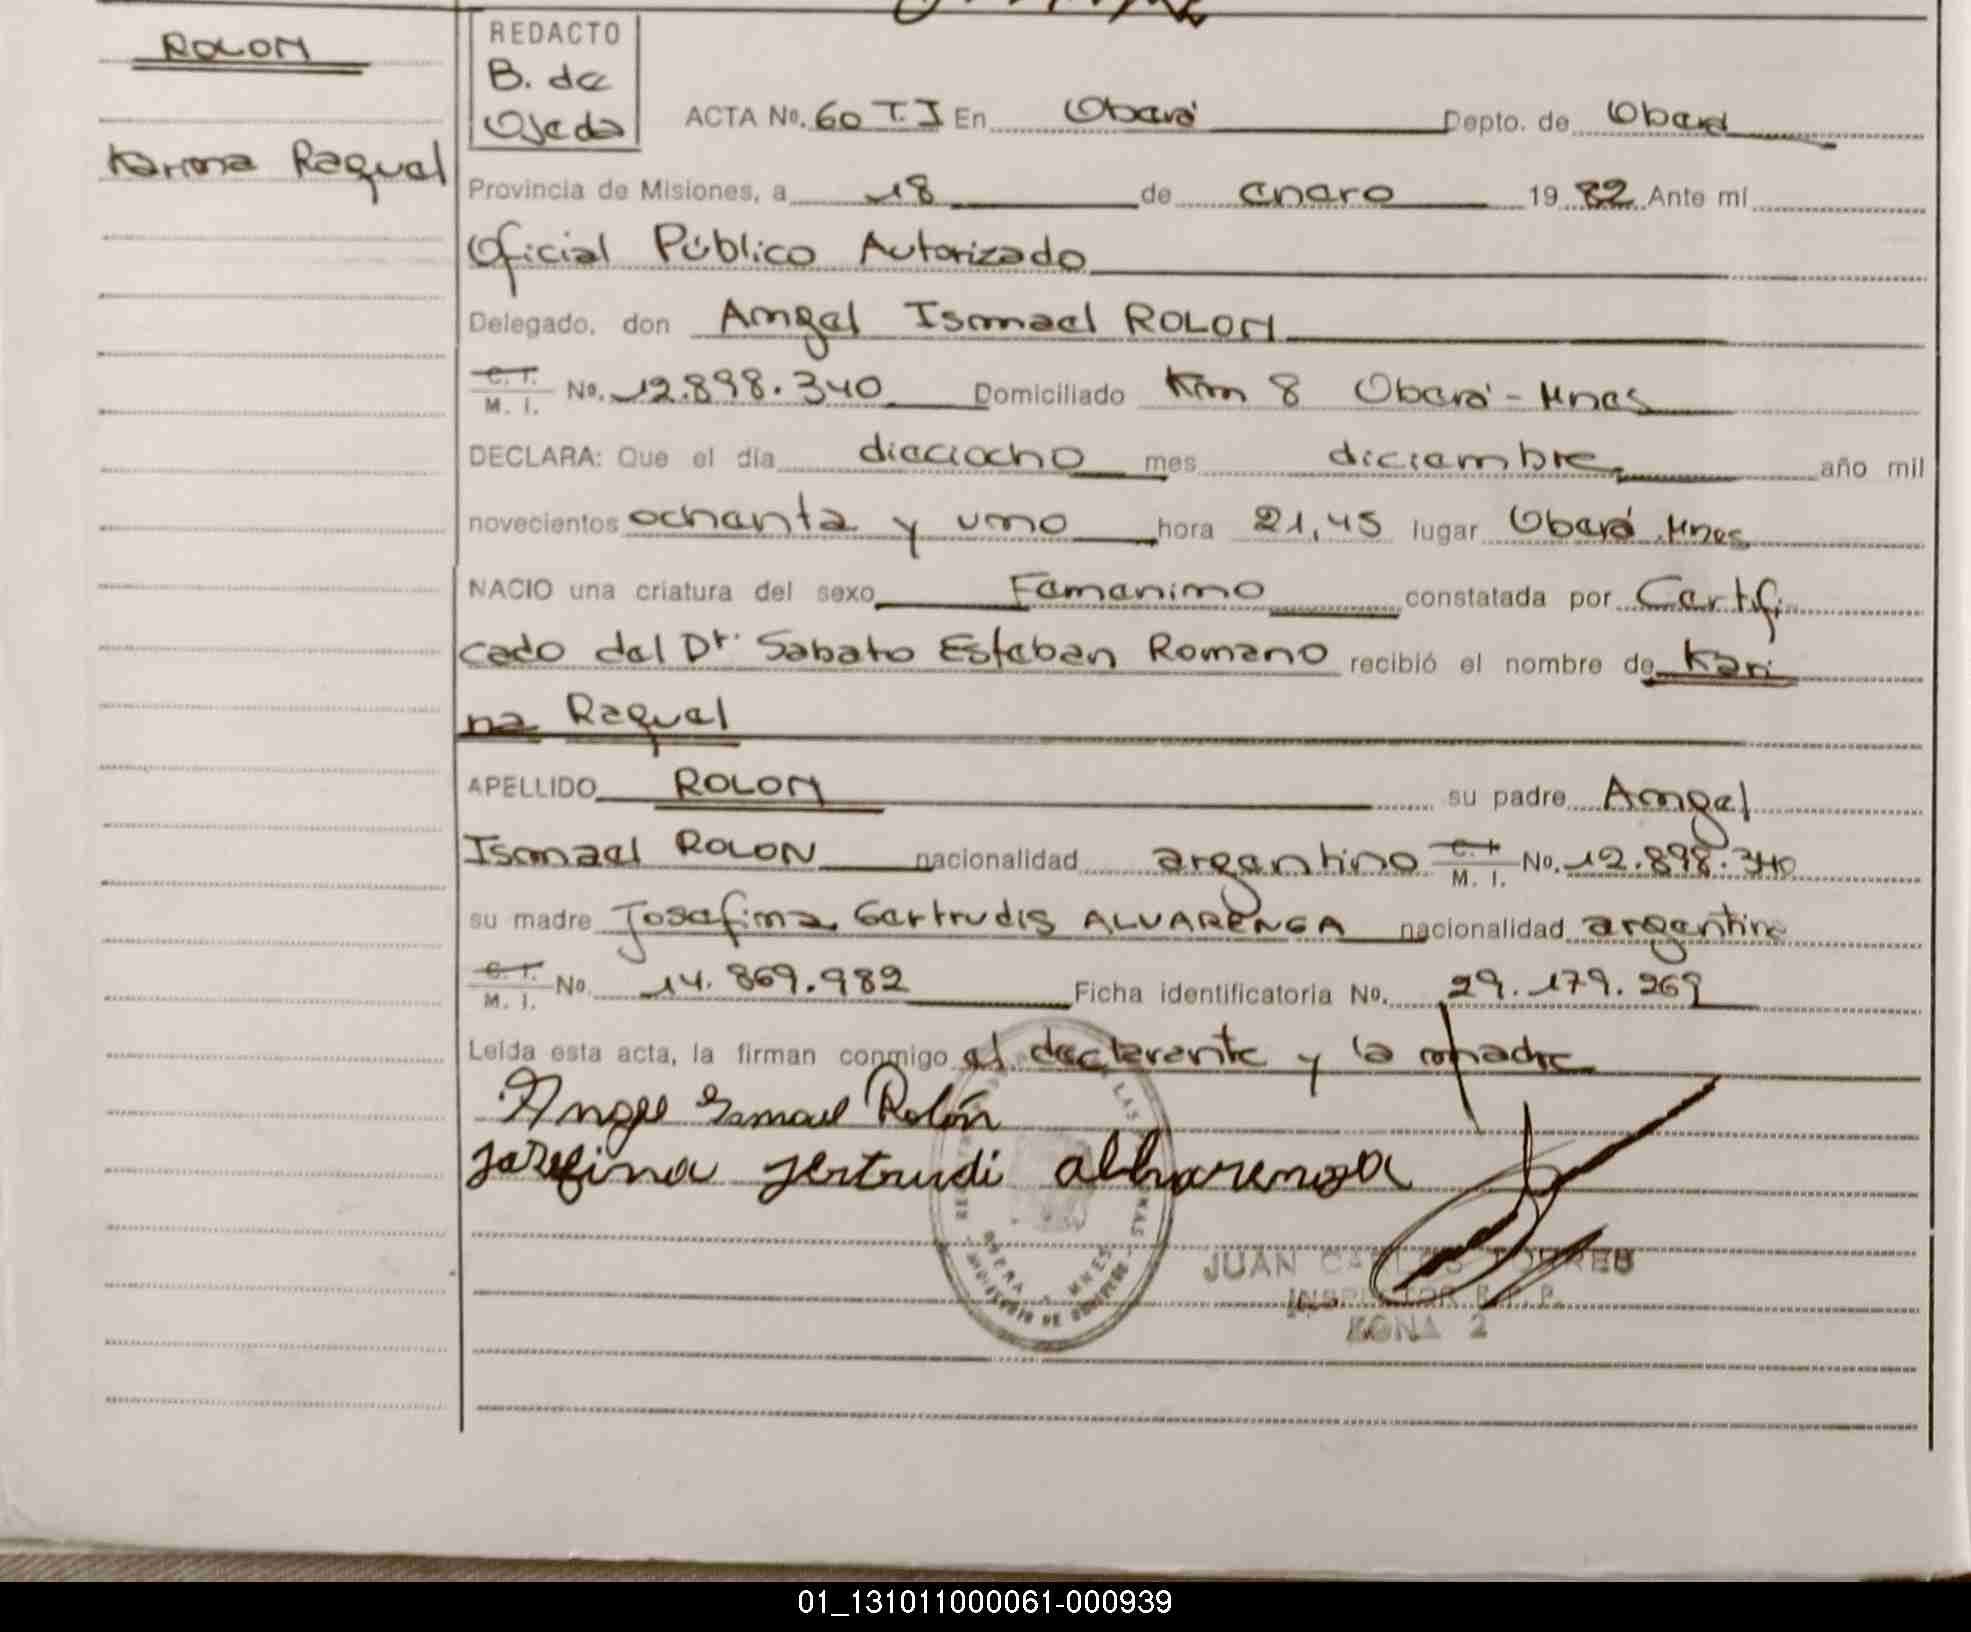 ROLON
Karina Raquel
REDACTO
B. de
Ojeda
ACTA No. 60 T.I En Oberá Depto. de Oberá
Provincia de Misiones, a 18 de enero 19 82 Ante mí
Oficial Público Autorizado
Delegado, don Angel Ismael ROLON
C. I. M. I. No. 12.898.340 Domiciliado Km 8 Oberá - Mnes
DECLARA: Que el día dieciocho mes diciembre año mil
novecientos ochenta y uno hora 21,45 lugar Oberá Mnes
NACIO una criatura del sexo Femenino constatada por Certifi
cado del Dr. Sabato Esteban Romano recibió el nombre de Kari
na Raquel
APELLIDO ROLON su padre Angel
Ismael ROLON nacionalidad argentino C. I. M. I. No. 12.898.340
su madre Josefina Gertrudis ALVARENGA nacionalidad argentina
C. I. M. I. No. 14.869.982 Ficha identificatoria No. 29.179.269
Leída esta acta, la firman conmigo el declarante y la madre
Angel Ismael Rolón
Josefina Jertrudi
OBERA MNES
MINISTERIO DE GOBIERNO
JUAN CARLOS TORRES
INSPECTOR R.P.P.
ZONA 2
01_131011000061-000939